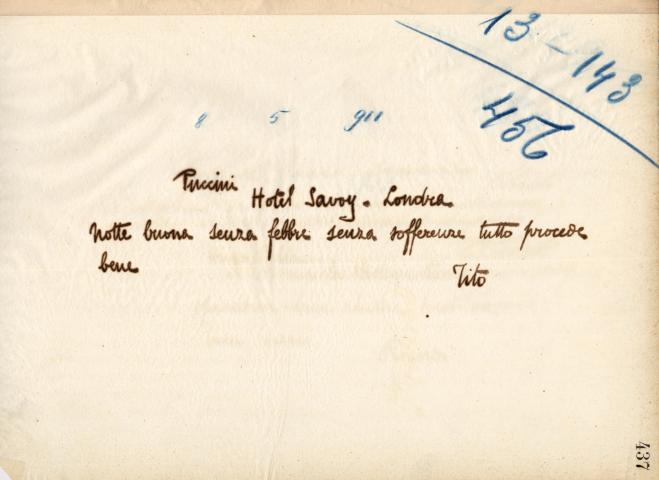 13 - 143
456
8 5 911
Puccini
Hotel Savoy. Londra
Notte buona senza febbre senza sofferenze tutto procede
bene
Tito
437